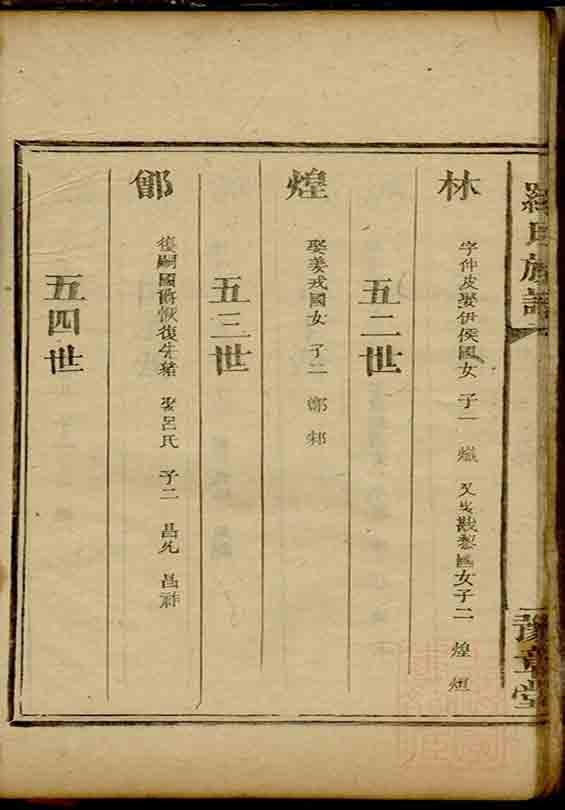 羅氏族譜
豫章堂
林
字仲皮娶伊侯國女 子一 熾 又娶戡黎國女子二 煌 烜
五二世
煌
娶姜戎國女 子二 鄭 邾
五三世
鄮
復嗣國爵恢復先緒 娶呂氏 子二 昌先 昌祚
五四世